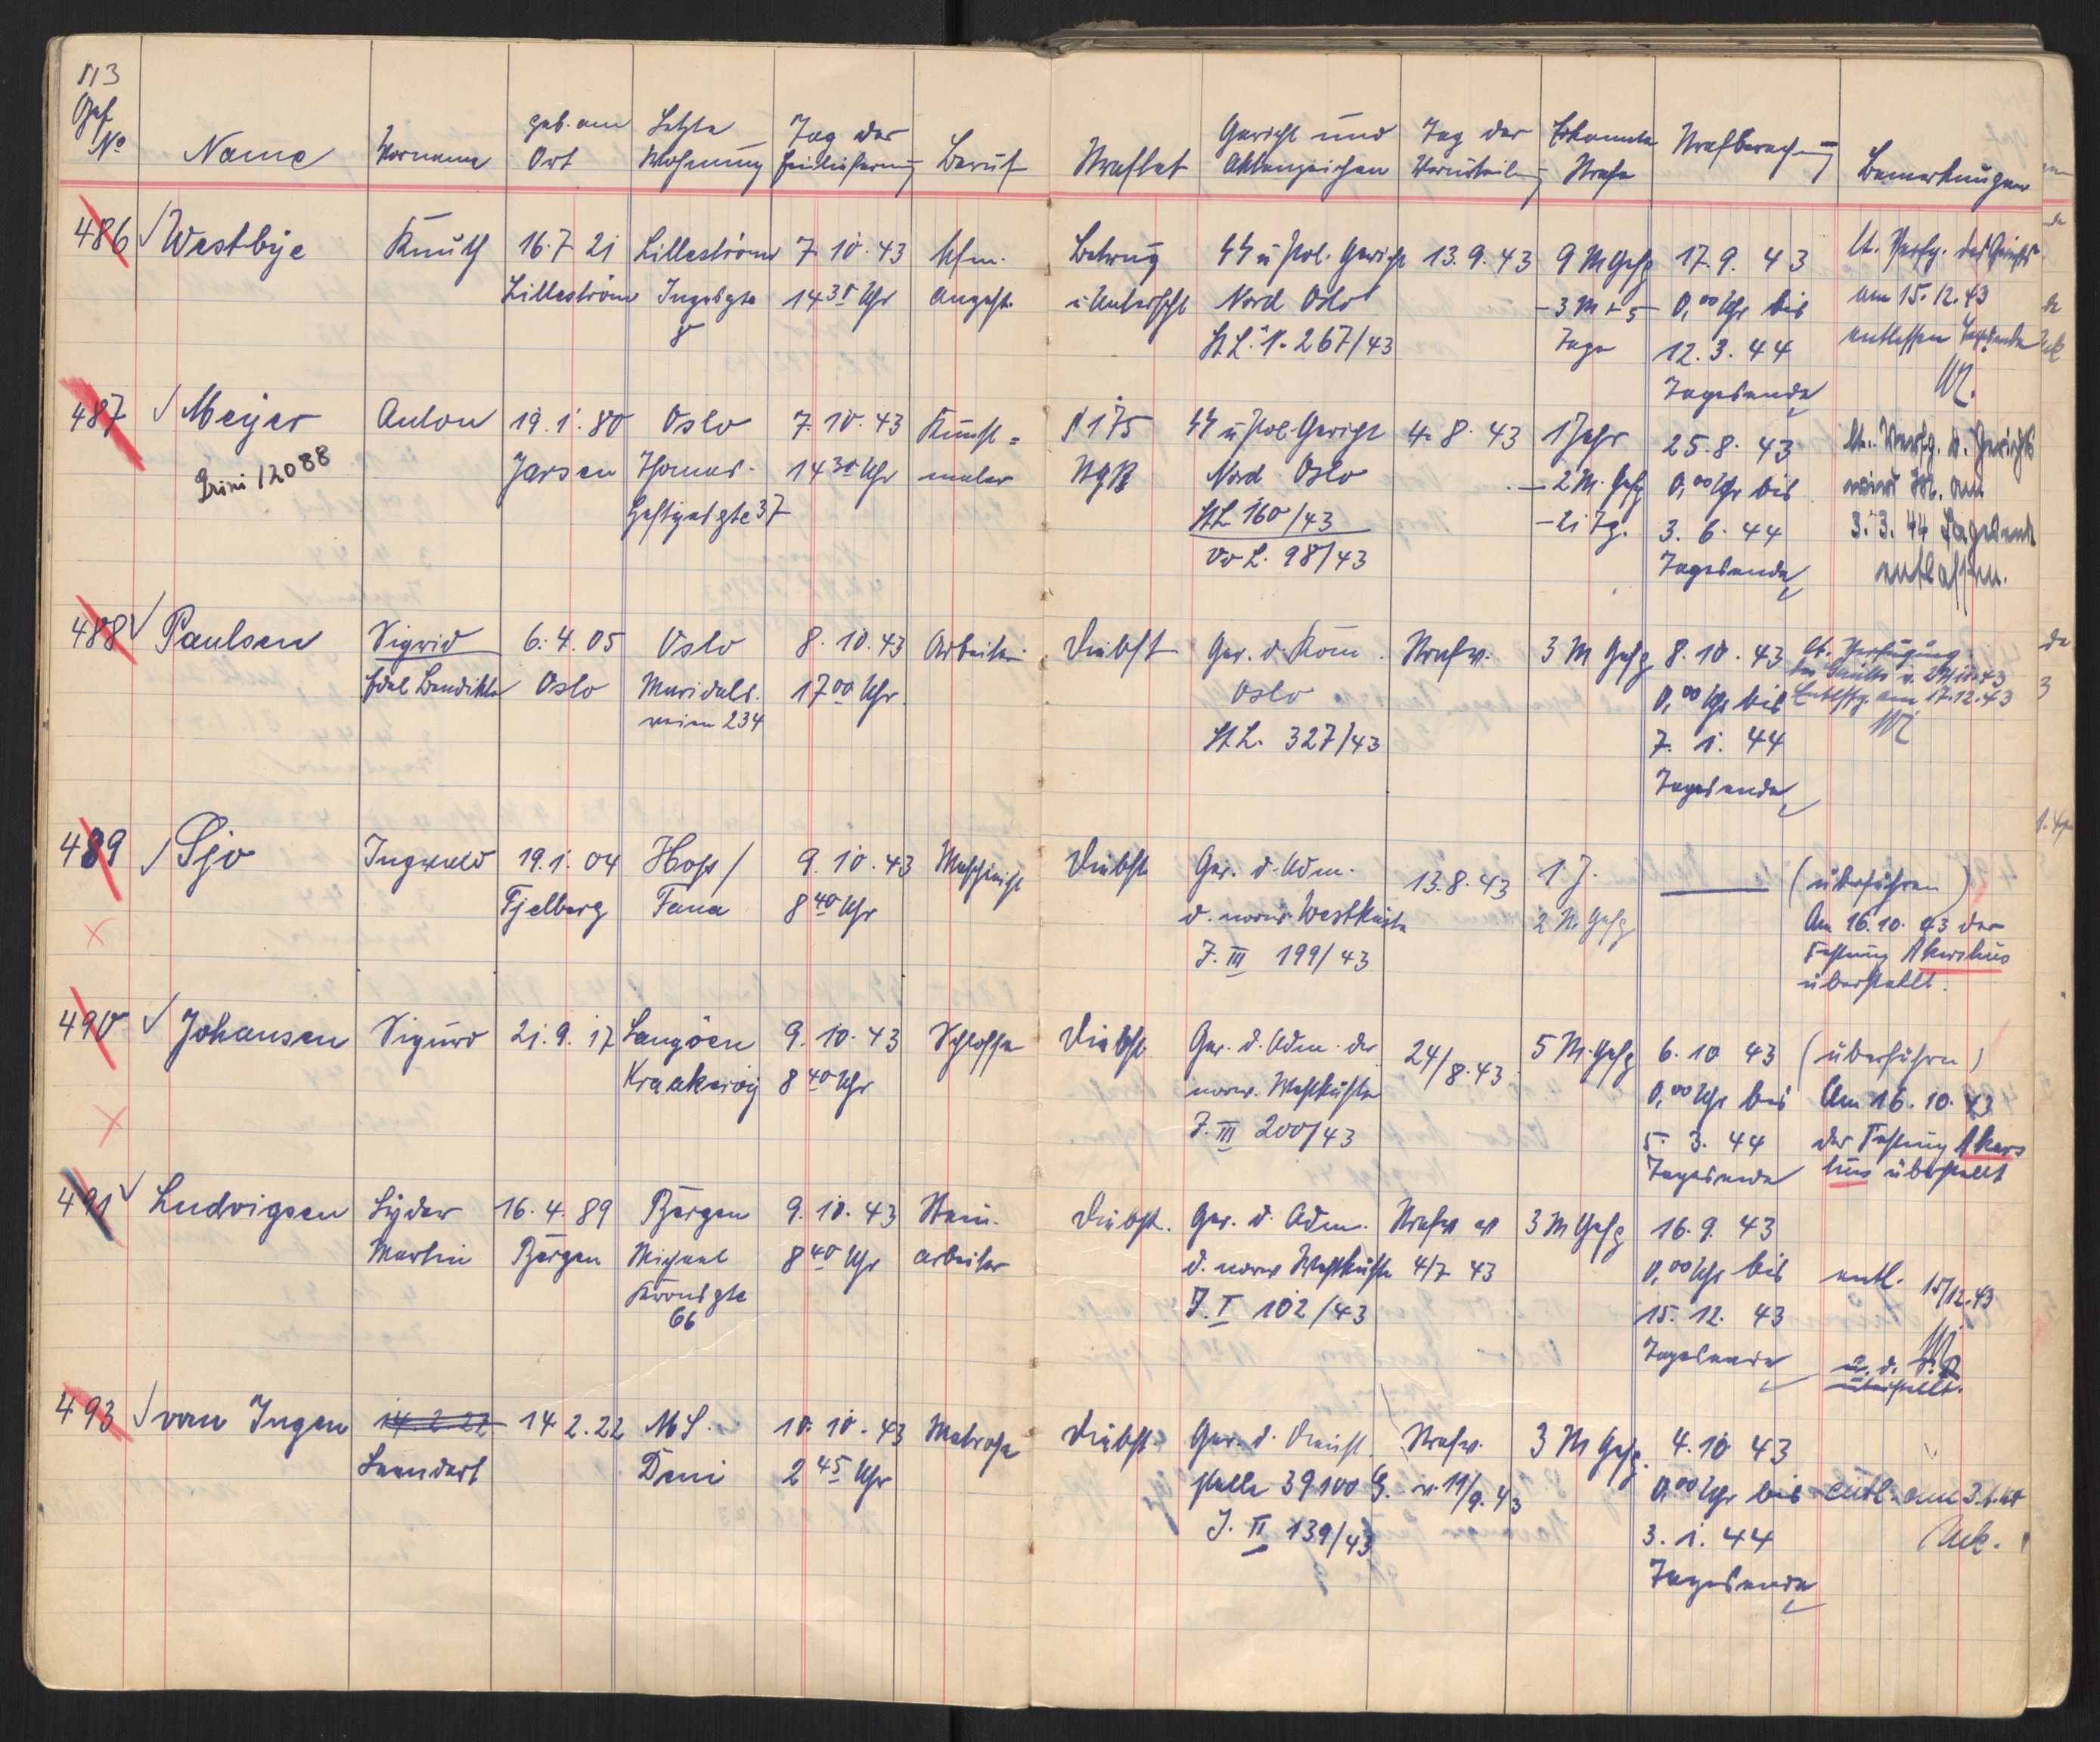 113
Gef. No
Name
Vorname
geb. am Ort
Letzte Wohnung
Tag der Einlieferung
Beruf
Straftat
Gericht und Aktenzeichen
Tag der Verurteilung
Erkannte Strafe
Strafberechnung
Bemerkungen
486 Westbye Knuth 16.7.21 Lilleström 7.10.43 kfm. Betrug SS u. Pol. Gericht 13.9.43 9 M Gefg 17.9.43 lt. Verfg. des Gerichts
Lilleström Ingasgte 14 30 Uhr Angest. u. Unterschl Nord Oslo - 3 M + 5 0,00 Uhr bis am 15.12.43
8 St.L. 1. 267/43 Tage 12.3.44 entlassen Tagesende
Tagesende
487 Meyer Anton 19.1.80 Oslo 7.10.43 Kunst= § 175 SS u Pol-Gericht 4.8.43 1 Jahr 25.8.43 lt. Verfg. d. Gerichts
Grini 12088 Jarsen Thomas- 14 30 Uhr maler Nord Oslo - 2 M. Gefg 0,00 Uhr bis wird M. am
Heftyesgte 37 St.L 160/43 - 21 Tg. 3.6.44 3.3.44 Tagesende
Vo L. 98/43 Tagesende entlassen.
488 Paulsen Sigrid 6.4.05 Oslo 8.10.43 Arbeiterin Diebst Ger. d. Kom. Strafv. 3 M Gefg 8.10.43 lt. Verfügung
Edel Bendikte Oslo Maridals- 17 00 Uhr Oslo 0,00 Uhr bis des Gerichts v. 29.10.43
veien 234 St.L. 327/43 7.1.44 Entlssg. am 17.12.43
Tagesende
489 Sjo Ingvald 19.1.04 Hop / 9.10.43 Maschinist Diebst Ger. d. Adm. 13.8.43 1 J. (überführen)
Fjelberg Fana 8 40 Uhr d. norw. Westküste 2 M. Gefg Am 16.10.43 der
J. III 199/43 Festung Akershus
überstellt.
490 Johansen Sigurd 21.9.17 Langöen 9.10.43 Schlosser Diebst. Ger. d. Adm. der 24/8.43 5 M. Gefg 6.10 43 (überführen)
Kraakeröy 8 40 Uhr norw. Westküste 0,00 Uhr bis Am 16.10.43
J. III 200/43 5.3.44 der Festung Akers
Tagesende hus überstellt
491 Ludvigsen Lyder 16.4.89 Bergen 9.10.43 Stein- Diebst. Ger. d. Adm. Strafv v 3 M Gefg 16.9.43
Martin Bergen Michael 8 40 Uhr arbeiter d. norw Westküste 4/7 43 0,00 Uhr bis entl. 15/12.43
Krohnsgte J. I 102/43 15.12.43
66 Tagesende
überstellt.
493 van Ingen 14.2.22 14 2.22 MS. 10.10.43 Matrose Diebst. Ger. d. Dienst Strafv. 3 M Gefg. 4.10 43
Leendert Deni 2 45 Uhr stelle 39100 G. v. 11/9.43 0,00 Uhr bis entl. am 3.1.44
J. II 139/43 3.1.44
Tagesende